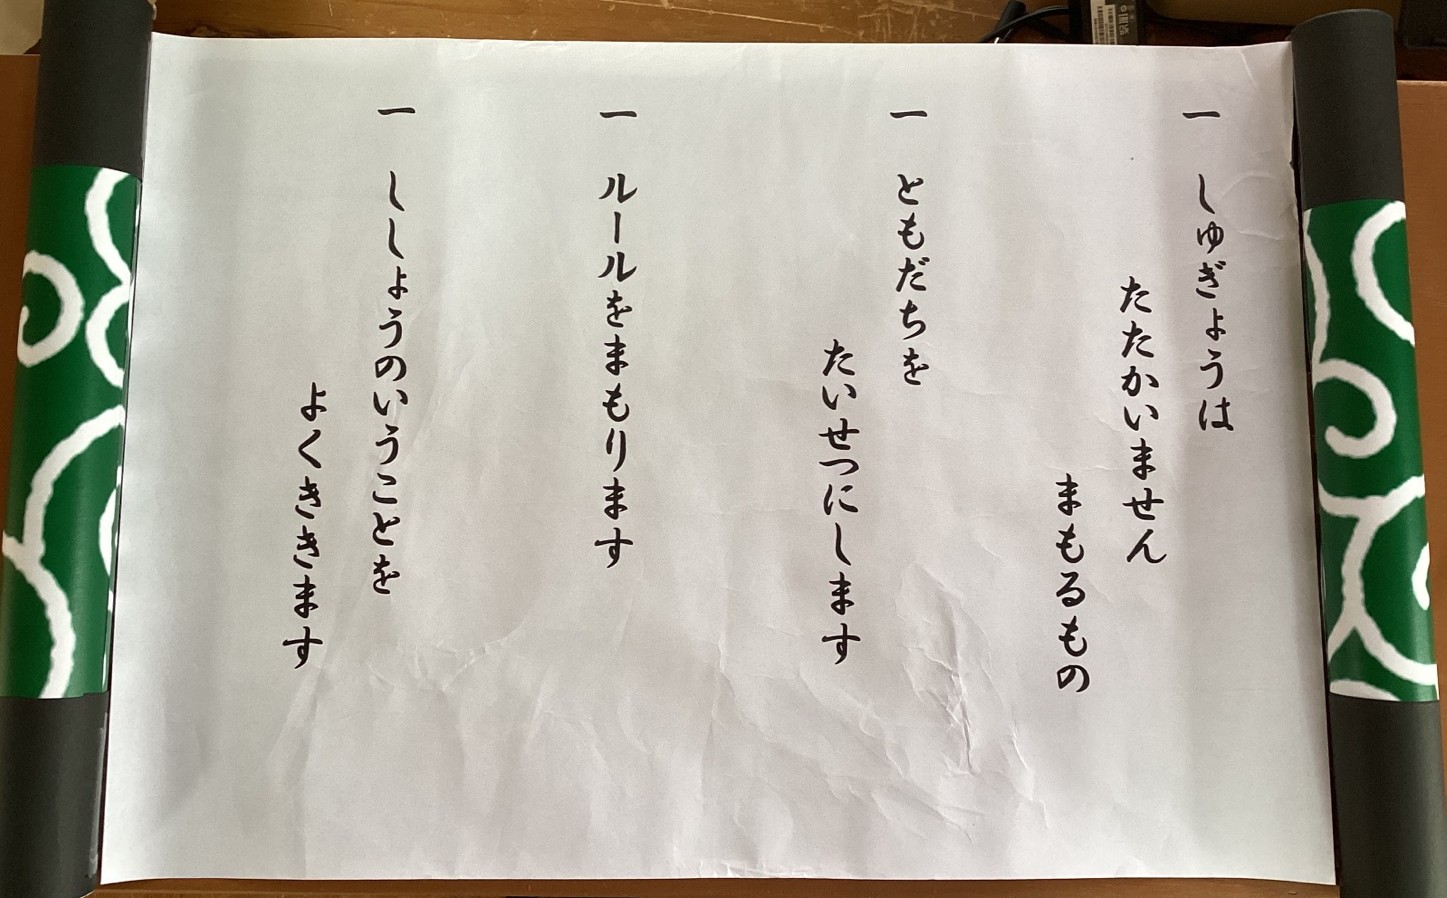 一 しゅぎょうは
たたかいません
まもるもの
一 ともだちを
たいせつにします
一 ルールをまもります
一 ししょうのいうことを
よくききます